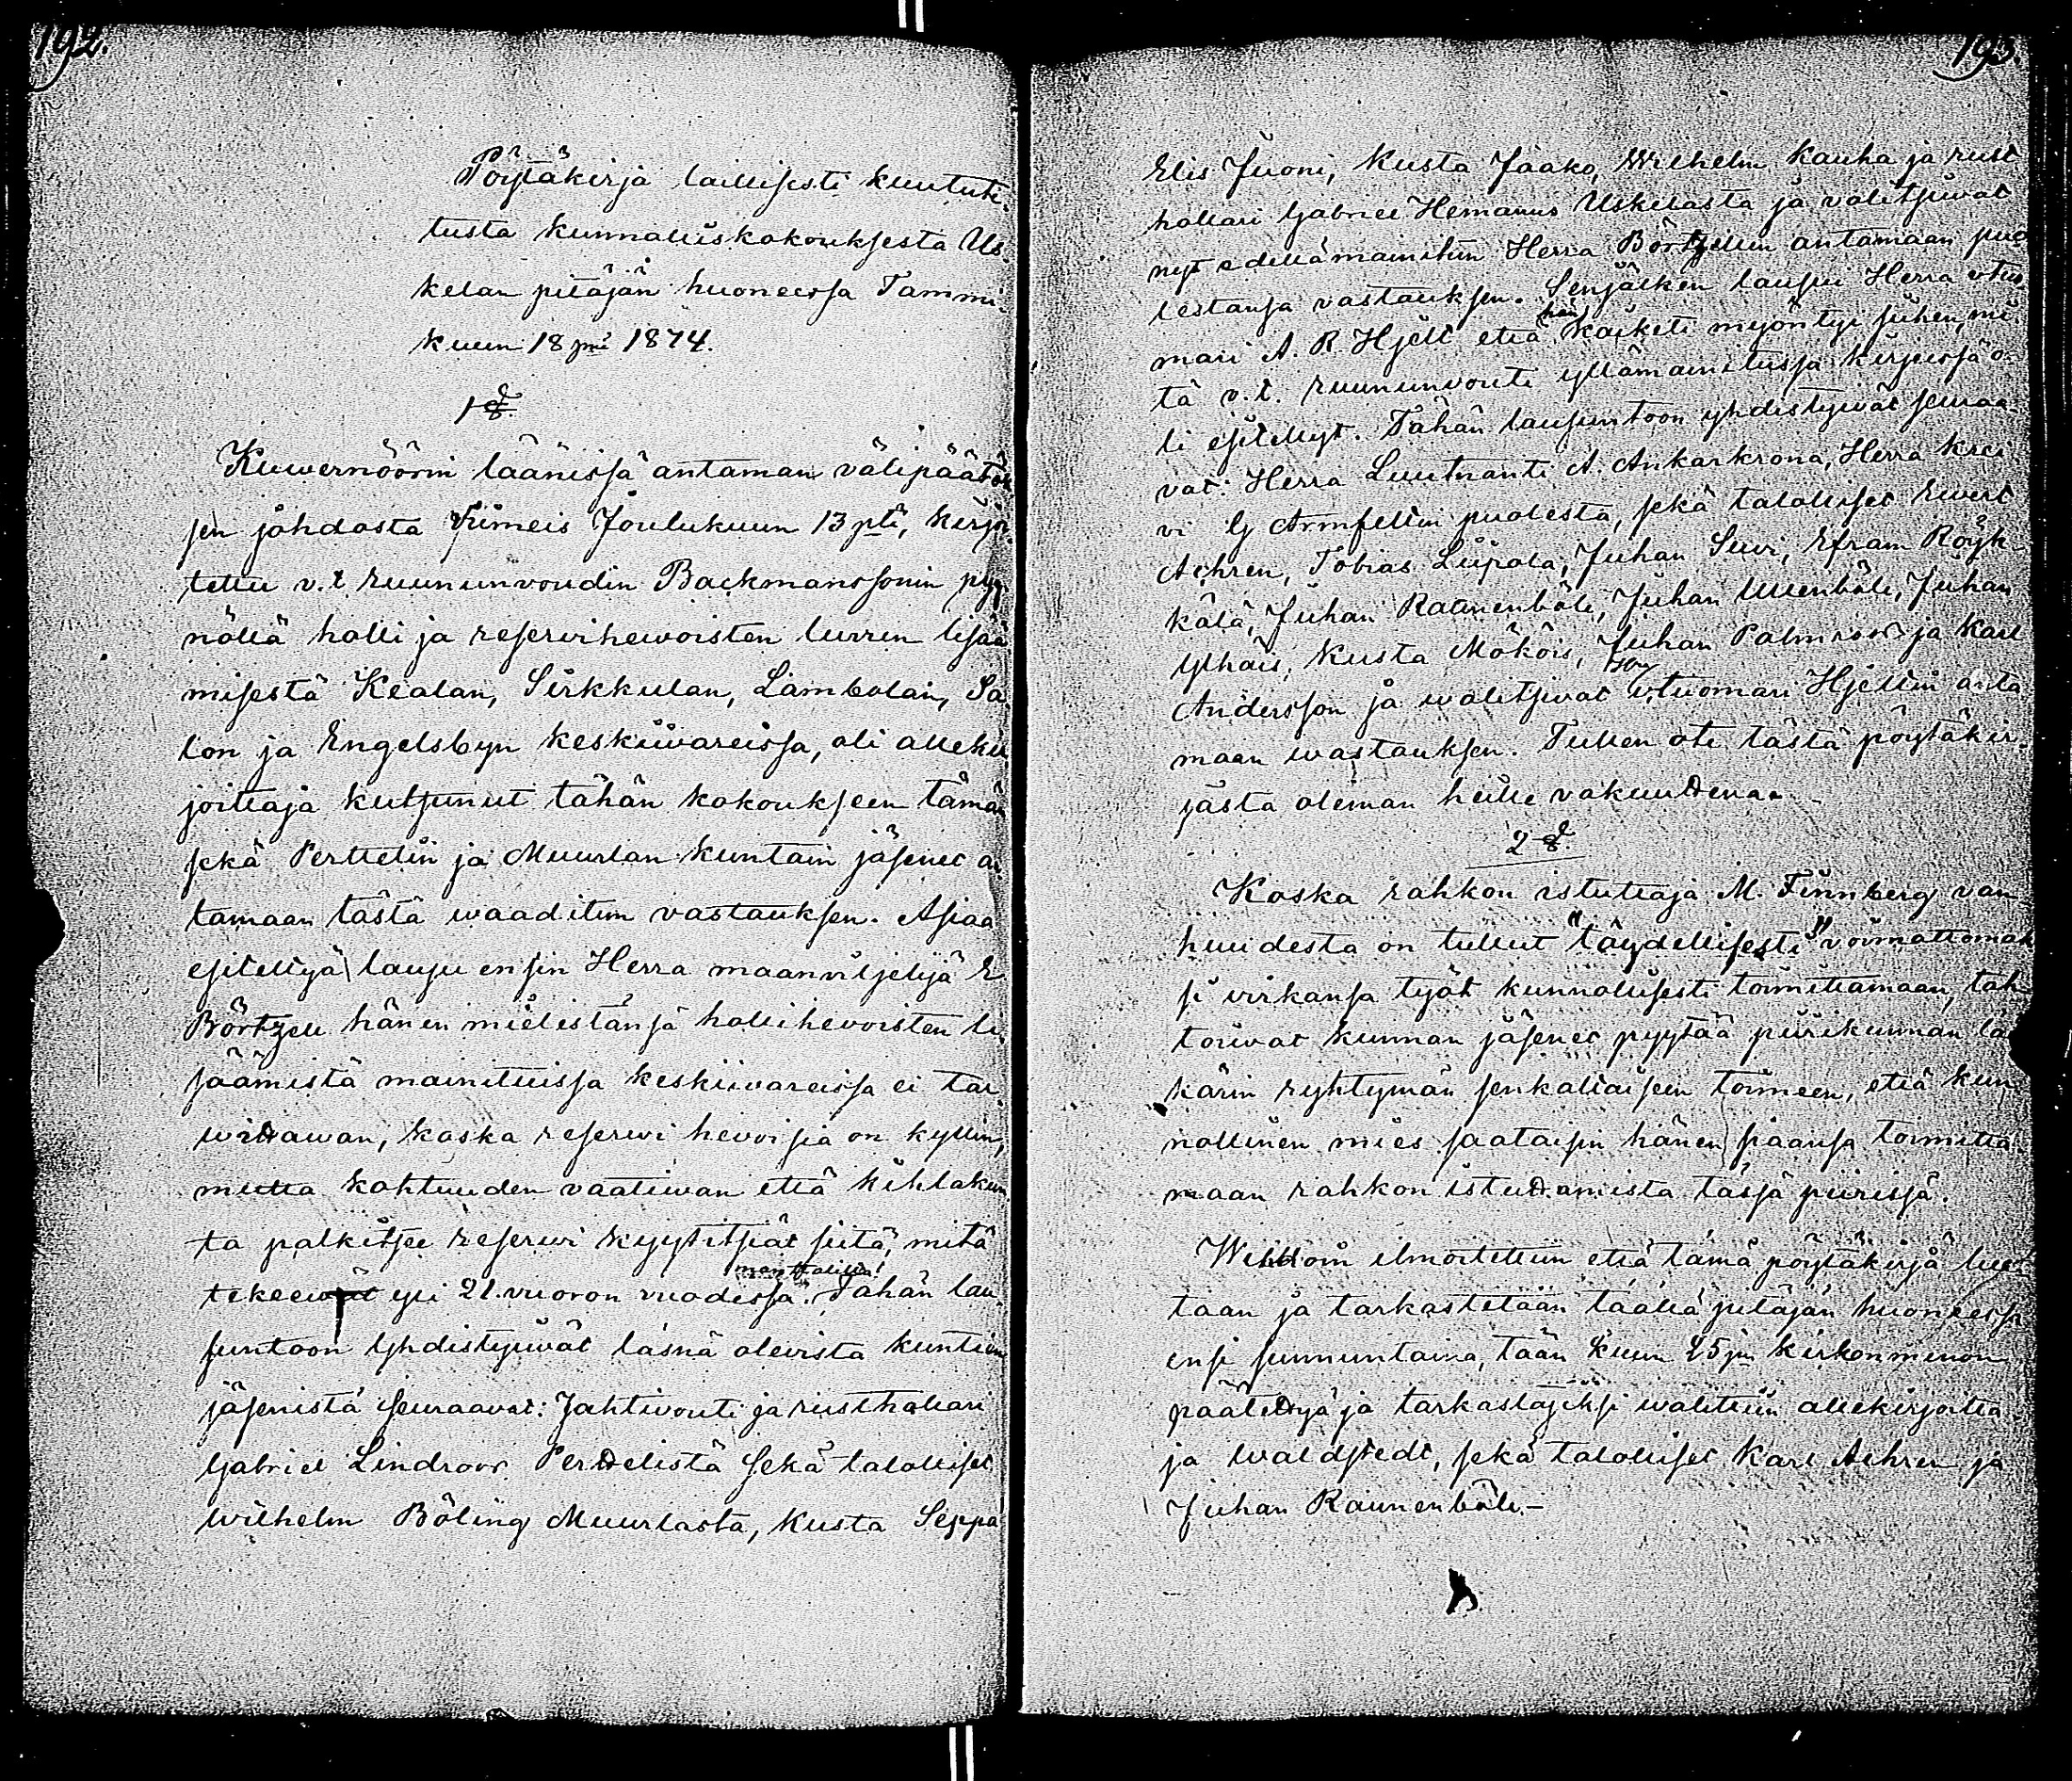 192.
Pöytäkirja laillisesti kuulut-
tusta kunnalliskokouksesta Us-
kelan pitäjän huoneessa Tammi-
kuun 18 pnä 1874.
1 §.
Kuwernöörin läänissä antaman välipäätök
sen johdosta viimeis Joulukuun 13 pltä, kirjo
tettu v.t. ruununvoudin Backmanssonin pyy
nöllä holli ja reserwihewoisten luvun lisää
misestä Kealan, Sirkkulan, Lambolan, Sa
lon ja Engelsbyn keskiiwareissa, oli alleku
joittaja kutsunut tähän kokoukseen tämän
sekä Perttelin ja Muurlan kuntain jäsenet a
tamaan tästä waaditun vastauksen. Asiaa
esiteltyä lausu ensin Herra maanviljelijä E.
Börtzell hänen mielestänsä hollihevoisten li
säämistä mainituissa keskiiwareissa ei tar
wittawan, koska reserwi hevoisia on kyllin,
mutta kohtuuden vaatiwan että kihlakun
ta palkitsee reserwi kyytitsiät siitä, mitä
tekeewät yli 21. vuoron vuodessa. Tähän lau
suntoon yhdistyiwät läsnä olevista kuntien
jäsenistä seuraavat: Jahtivouti ja rusthollari
Gabriel Lindroos Perttelistä sekä talolliset
Wilhelm Böling Muurlasta, Kusta Seppä
193.
Elis Juoni, Kusta Jaako, Wilhelm Kauha ja rust
hollari Gabriel Hemanus Uskelasta ja valitsiwat
nyt edellämainitun Herra Börtzellin antamaan puo
lestansa vastauksen. Senjälken lausui Herra vtuo
mari A. R. Hjelt että hän kaiketi myöntyi siihen, mi
tä v.t. ruununvouti yllämainitussa kirjeissä o
li esitellyt. Tähän lausuntoon yhdistyiwät seuraa
vat: Herra Luutnanti A. Ankarkrona, Herra Krei
vi G Armfeltin puolesta, sekä talolliset Ewert
Achren, Tobias Liipola, Juhan Suvi, Efram Röyk
kälä, Juhan Raunenböle, Juhan Ullenböle, Juhan
Ylhäis, Kusta Mököis, Juhan Palmroos ja Karl
Andersson ja walitsiwat vtuomari Hjeltin anta
maan wastauksen. Tullen ote tästä pöytäkir
jästä oleman heille vakuudena.
2 §.
Koska rahkon istuttaja M. Finnberg van
huudesta on tullut "täydellisesti" voimattomak
si virkansa työt kunnollisesti toimittamaan, tah
toiwat kunnan jäsenet pyytää piirikunnan lä
kärin ryhtymän senkaltaiseen toimeen, että kun
nollinen mies saataisin hänen siaansa toimitta
maan rahkon istuttamista tässä piirissä.
Wiimein ilmoitettiin että tämä pöytäkirja lue
taan ja tarkastetaan täällä pitäjän huoneessa
ensi sunnuntaina, tään kuun 25 pn kirkonmenon
päätettyä ja tarkastajiksi walittiin allekirjoitta
ja Waldstedt, sekä talolliset Karl Achren ja
Juhan Raunenböle.–